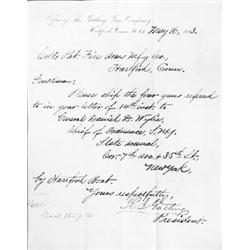 Office of the Gatling Gun Company,
Hartford, Conn. U.S.A. May 16, 1883.
Colts Pat. Fire Arms Mfg Co,
Hartford, Conn.
Gentlemen:
Please ship the four guns referred
to in your letter of 14th inst. to
General Daniel D. Wylie,
Chief of Ordnance, S.N.Y.
State Arsenal,
Cor. 7th Ave. & 35th St.
New York
by Hartford Boat
Yours respectfully,
R. J. Gatling
President.